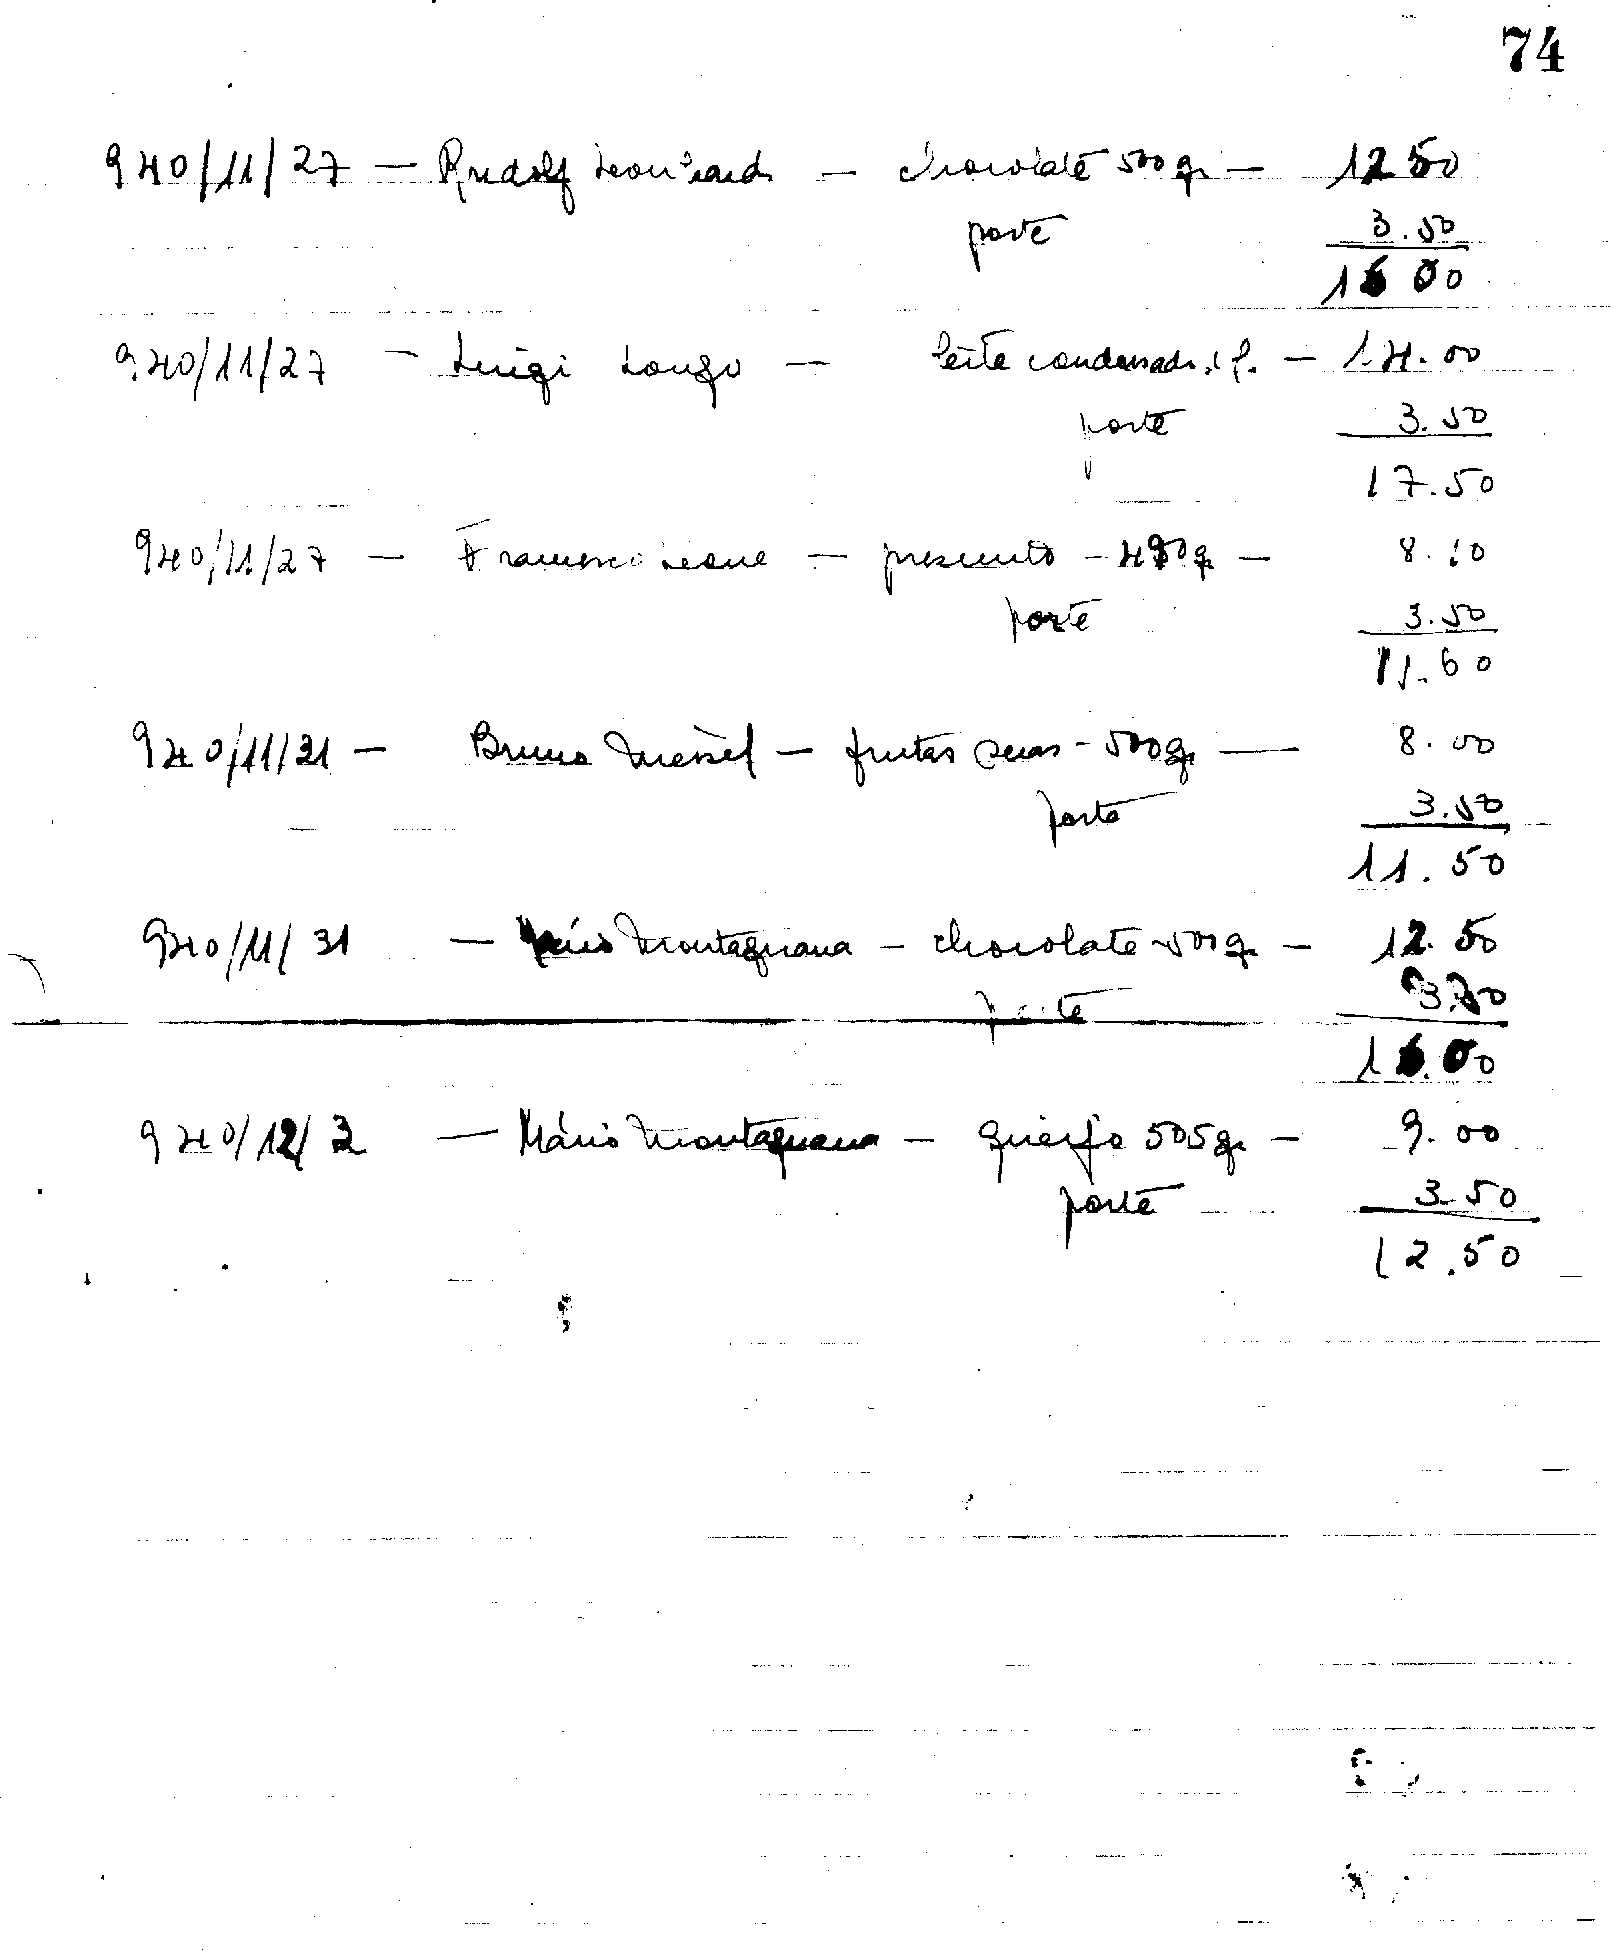 74
940/11/27 — Rudolf Leonhard — chocolate 500gr — 12 50
porte 3.50
16 00
940/11/27 — Luigi Longo — leite condensado — 14.00
porte 3.50
17.50
940/11/27 — Francesco Leone — presunto — gr — 8.10
porte 3.50
11.60
940/11/31 — Bruno — frutas secas - 500gr — 8.00
porte 3.50
11.50
940/11/31 — Mário Montagnana — chocolate 500gr — 12.50
porte 3.50
16.00
940/12/2 — Mário Montagnana — queijo 505gr — 9.00
porte 3.50
12.50